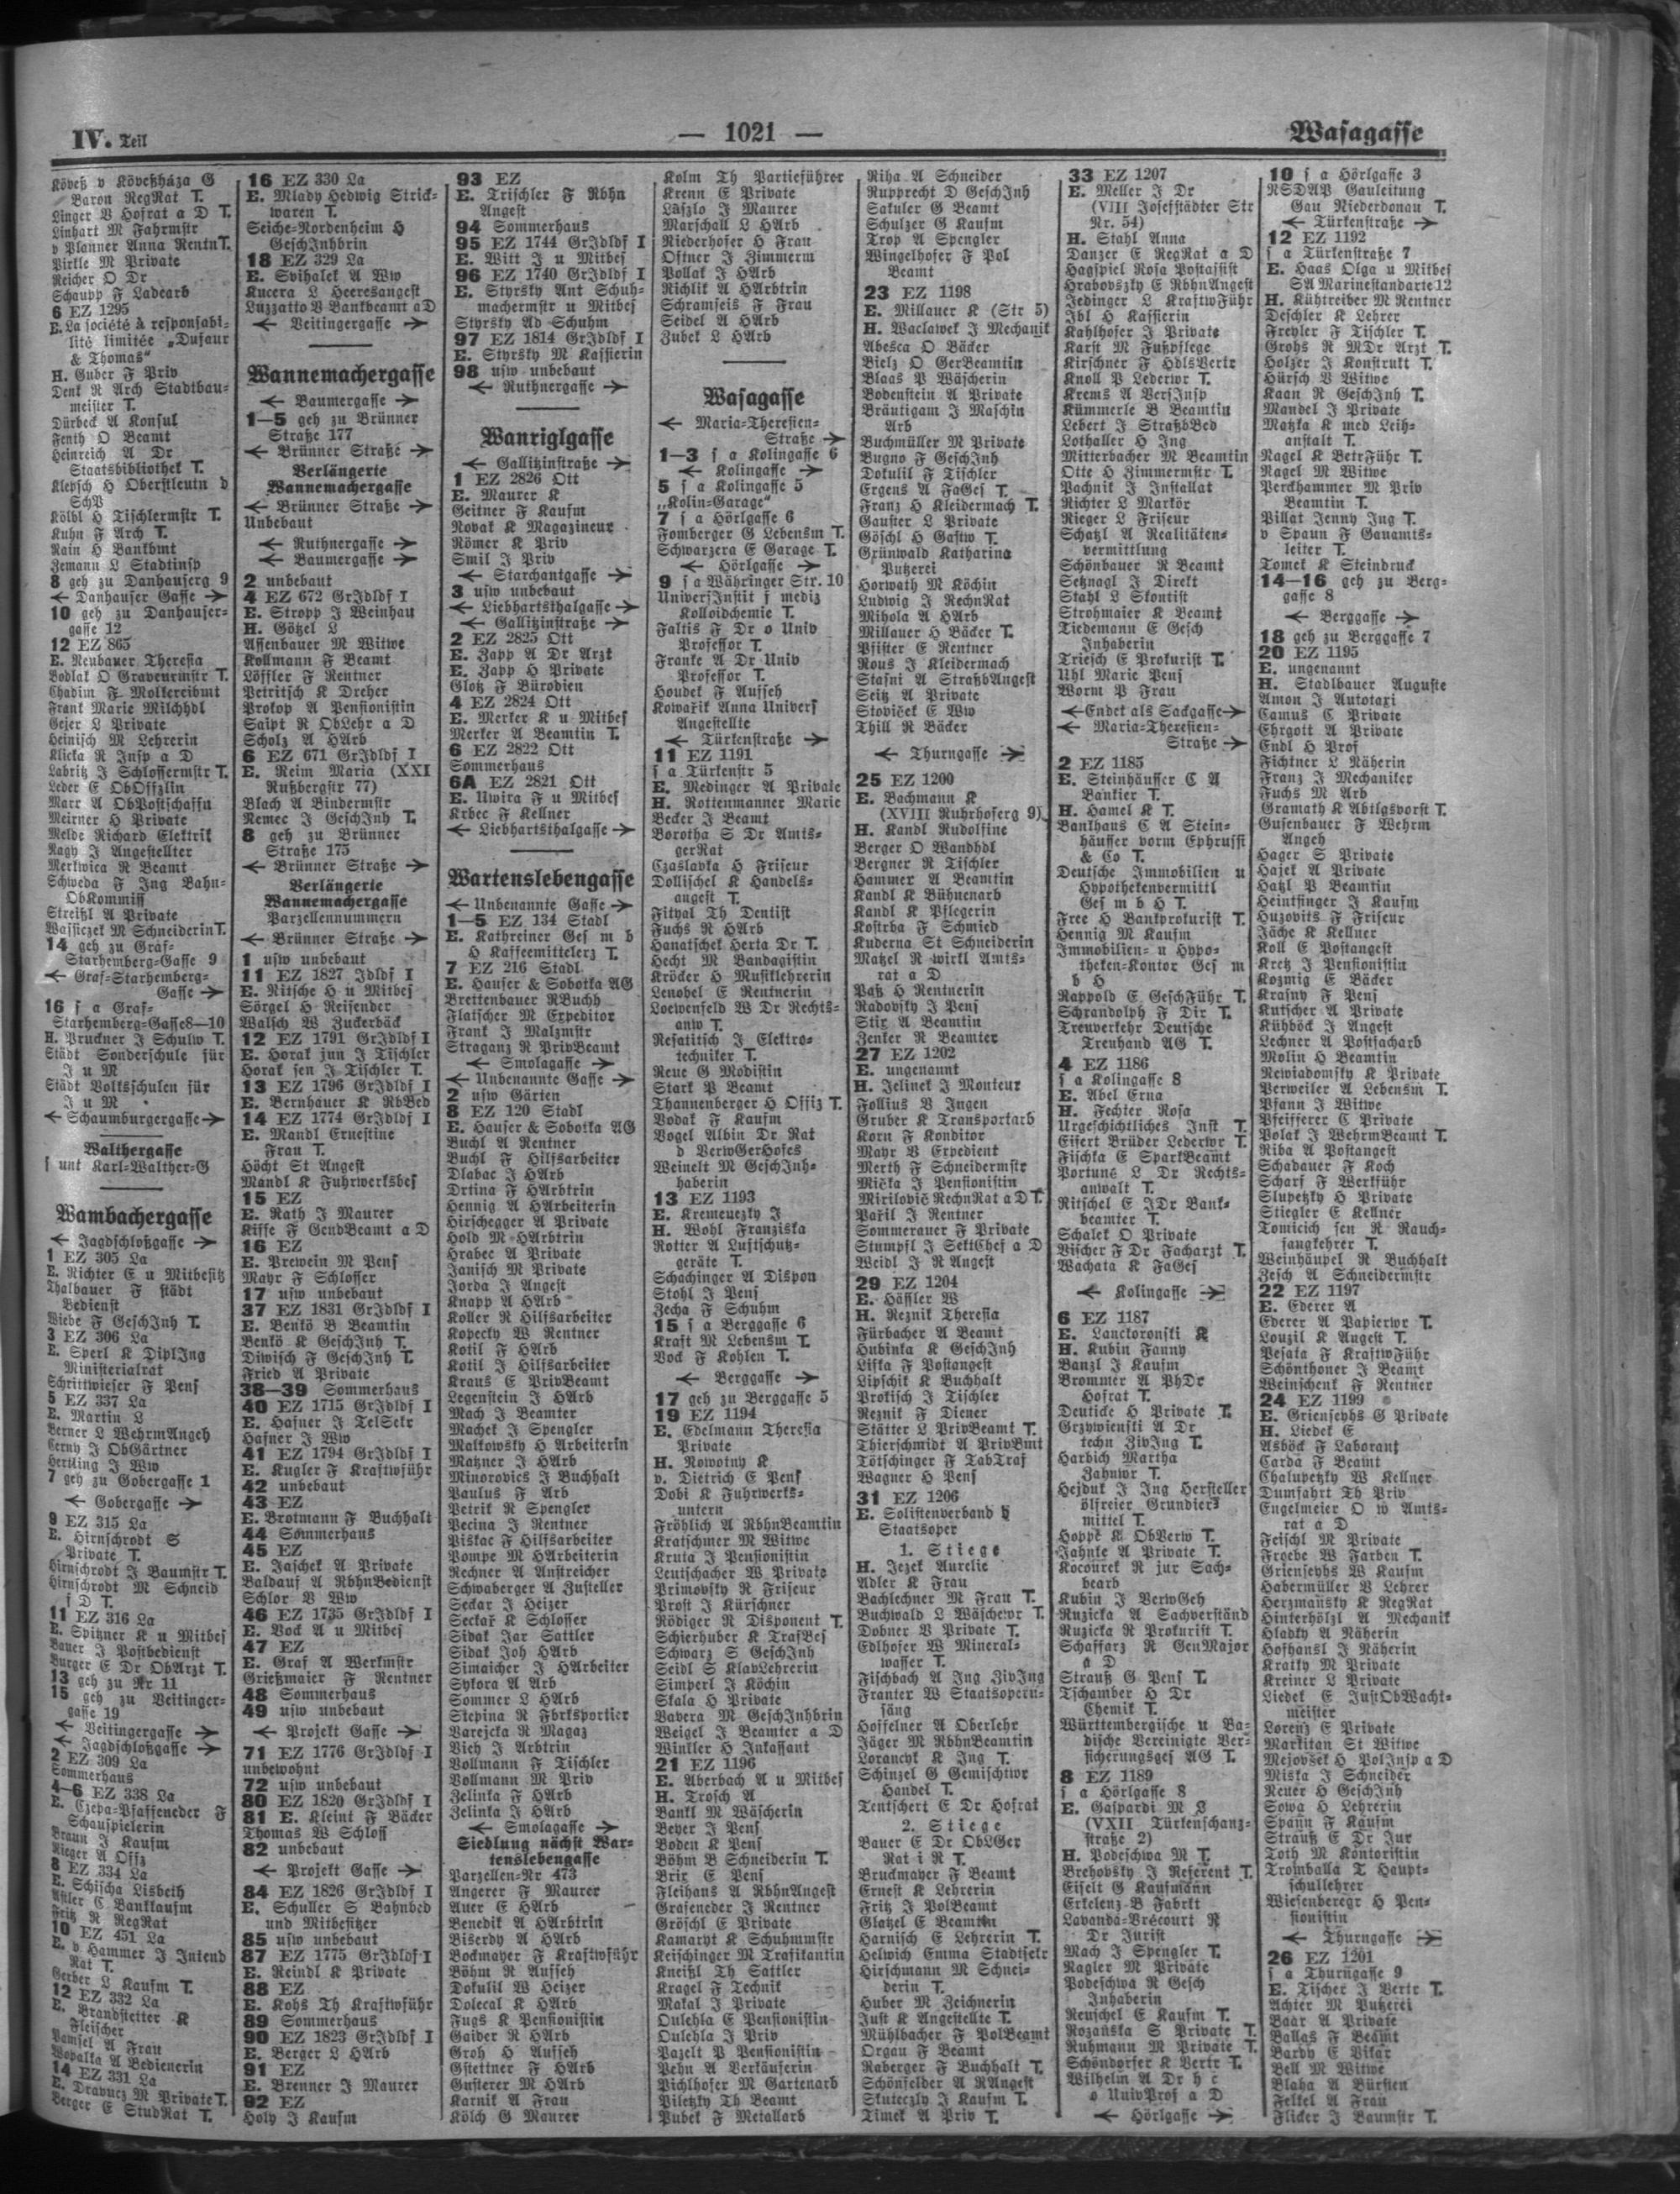 IV. Teil
— 1021 —
Wasagasse
Köveß v Kövesßháza G
Baron RegRat T.
Linger V Hofrat a D T.
Linhart M Fahrmstr
v Planner Anna RentnT.
Pirkle M Private
Reicher O Dr
Schaupp F Ladearb
6 EZ 1295
E. La société à responsabi-
lité limitée „Dufaur
& Thomas"
H. Guber F Priv
Denk R Arch Stadtbau-
meister T.
Dürbeck A Konsul
Fenth O Beamt
Heinreich A Dr
Staatsbibliothek T.
Klepsch H Oberstleutn d
SchP
Kölbl H Tischlermstr T.
Kuhn F Arch T.
Rain H Bankbmt
Zemann L Stadtinsp
8 geh zu Danhauserg 9
← Danhauser Gasse →
10 geh zu Danhauser-
gasse 12
12 EZ 865
E. Neubauer Theresia
Bodlak O Graveurmstr T.
Chadim F Molkereibmt
Frank Marie Milchhdl
Gejer L Private
Heinisch M Lehrerin
Klicka R Insp a D
Labritz J Schlossermstr T.
Leder E ObOffzlin
Marr A ObPostschaffn
Meirner H Private
Melde Richard Elektrik
Nagy J Angestellter
Merkwica R Beamt
Schweda F Ing Bahn-
ObKommiss
Streißl A Private
Wajsiczek M SchneiderinT.
14 geh zu Graf-
Starhemberg-Gasse 9
← Graf-Starhemberg-
Gasse →
16 s a Graf-
Starhemberg-Gasse8—10
H. Pruckner J Schulw T.
Städt Sonderschule für
J u M
Städt Volksschulen für
J u M
← Schaumburgergasse →
Walthergasse
s unt Karl-Walther-G
Wambachergasse
← Jagdschloßgasse →
1 EZ 305 La
E. Richter E u Mitbesitz
Thalbauer F städt
Bedienst
Wiede F GeschInh T.
3 EZ 306 La
E. Sperl K DiplIng
Ministerialrat
Schrittwieser F Pens
5 EZ 337 La
E. Martin L
Berner L WehrmAngeh
Cerny J ObGärtner
Hertling J Ww
7 geh zu Gobergasse 1
← Gobergasse →
9 EZ 315 La
E. Hirnschrodt S
Private T.
Hirnschrodt J Baumstr T.
Hirnschrodt M Schneid
f D T.
11 EZ 316 La
E. Spitzner K u Mitbes
Bauer J Postbedienst
Burger E Dr ObArzt T.
13 geh zu Nr 11
15 geh zu Veitinger-
gasse 19
← Veitingergasse →
← Jagdschloßgasse →
2 EZ 309 La
Sommerhaus
4—6 EZ 338 La
E. Czepa-Pfaffeneder F
Schauspielerin
Braun J Kaufm
Rieger A Offz
8 EZ 334 La
E. Schischa Lisbeth
Adler C Bankkaufm
Fritz R RegRat
10 EZ 451 La
E. v Hammer J Intend
Rat T.
Gerber L Kaufm T.
12 EZ 332 La
E. Brandstetter K
Fleischer
Pamsel A Frau
Wopalka A Bedienerin
14 EZ 331 La
E. Dravucz M Private T.
Berger E StudRat T.
16 EZ 330 La
E. Mlady Hedwig Strick-
waren T.
Seiche-Nordenheim H
GeschInhbrin
18 EZ 329 La
E. Svihalek A Ww
Kucera L Heeresangest
Luzzatto V Bankbeamt aD
← Veitingergasse →
Wannemachergasse
← Baumergasse →
1—5 geh zu Brünner
Straße 177
← Brünner Straße →
Verlängerte
Wannemachergasse
← Brünner Straße →
Unbebaut
← Ruthnergasse →
← Baumergasse →
2 unbebaut
4 EZ 672 GrJdldf I
E. Stropp J Weinhau
H. Götzel L
Assenbauer M Witwe
Kollmann F Beamt
Löffler F Rentner
Petritsch K Dreher
Prokop A Pensionistin
Saipt R ObLehr a D
Scholz A HArb
6 EZ 671 GrJdldf I
E. Reim Maria (XXI
Rußbergstr 77)
Blach A Bindermstr
Nemec J GeschInh T.
8 geh zu Brünner
Straße 175
← Brünner Straße →
Verlängerte
Wannemachergasse
Parzellennummern
← Brünner Straße →
1 usw unbebaut
11 EZ 1827 Jdldf I
E. Nitsche H u Mitbes
Sörgel H Reisender
Walsch W Zuckerbäck
12 EZ 1791 GrJdldf I
E. Horak jun J Tischler
Horak sen J Tischler T.
13 EZ 1796 GrJdldf I
E. Bernhauer K RbBed
14 EZ 1774 GrJdldf I
E. Mandl Ernestine
Frau T.
Höcht St Angest
Mandl K Fuhrwerksbes
15 EZ
E. Rath J Maurer
Kisse F GendBeamt a D
16 EZ
E. Prewein M Pens
Mayr F Schlosser
17 usw unbebaut
37 EZ 1831 GrJdldf I
E. Benkö B Beamtin
Benkö K GeschInh T.
Diwisch F GeschInh T.
Fried A Private
38—39 Sommerhaus
40 EZ 1715 GrJdldf I
E. Hafner J TelSekr
Hafner J Ww
41 EZ 1794 GrJdldf I
E. Kugler F Kraftwführ
42 unbebaut
43 EZ
E. Brotmann F Buchhalt
44 Sommerhaus
45 EZ
E. Jaschek A Private
Baldauf A RbhnBedienst
Schlor V Ww
46 EZ 1735 GrJdldf I
E. Bock A u Mitbes
47 EZ
E. Graf A Werkmstr
Grießmaier F Rentner
48 Sommerhaus
49 usw unbebaut
← Projekt Gasse →
71 EZ 1776 GrJdldf I
unbewohnt
72 usw unbebaut
80 EZ 1820 GrJdldf I
81 E. Kleint F Bäcker
Thomas W Schloss
82 unbebaut
← Projekt Gasse →
84 EZ 1826 GrJdldf I
E. Schuller S Bahnbed
und Mitbesitzer
85 usw unbebaut
87 EZ 1775 GrJdldf I
E. Reindl K Private
88 EZ
E. Kohs Th Kraftwführ
89 Sommerhaus
90 EZ 1823 GrJdldf I
E. Berger L HArb
91 EZ
E. Brenner J Maurer
92 EZ
Holy J Kaufm
93 EZ
E. Trischler F Rbhn
Angest
94 Sommerhaus
95 EZ 1744 GrJdldf I
E. Witt J u Mitbes
96 EZ 1740 GrJdldf I
E. Styrsky Ant Schuh-
machermstr u Mitbes
Styrsky Ad Schuhm
97 EZ 1814 GrJdldf I
E. Styrsky M Kassierin
98 usw unbebaut
← Ruthnergasse →
Wanriglgasse
← Gallitzinstraße →
1 EZ 2826 Ott
E. Maurer K
Geitner F Kaufm
Novak K Magazineur
Römer K Priv
Smil J Priv
← Starchantgasse →
3 usw unbebaut
← Liebhartsthalgasse →
← Gallitzinstraße →
2 EZ 2825 Ott
E. Zapp A Dr Arzt
E. Zapp H Private
Glotz F Bürodien
4 EZ 2824 Ott
E. Merker K u Mitbes
Merker A Beamtin T.
6 EZ 2822 Ott
Sommerhaus
6A EZ 2821 Ott
E. Uwira F u Mitbes
Krbec F Kellner
← Liebhartsthalgasse →
Wartenslebengasse
← Unbenannte Gasse →
1—5 EZ 134 Stadl
E. Kathreiner Ges m b
H Kaffeemittelerz T.
7 EZ 216 Stadl
E. Hauser & Sobotka AG
Breitenbauer RBuchh
Flatscher M Expeditor
Frank J Malzmstr
Straganz R PrivBeamt
← Smolagasse →
← Unbenannte Gasse →
2 usw Gärten
8 EZ 120 Stadl
E. Hauser & Sobotka AG
Buchl A Rentner
Buchl F Hilfsarbeiter
Dlabac J HArb
Drtina F HArbtrin
Hennig A HArbeiterin
Hirschegger A Private
Hold M HArbtrin
Hrabec A Private
Janisch M Private
Jorda J Angest
Knapp A HArb
Koller R Hilfsarbeiter
Kopecky W Rentner
Kotil F HArb
Kotil J Hilfsarbeiter
Kraus E PrivBeamt
Legenstein J HArb
Mach J Beamter
Machek J Spengler
Malkowsky H Arbeiterin
Matzner J HArb
Minorovics J Buchhalt
Paulus F Arb
Petrik R Spengler
Pecina J Rentner
Piskac F Hilfsarbeiter
Pompe M HArbeiterin
Rechner A Anstreicher
Schwaberger A Zusteller
Seckar J Heizer
Seckař K Schlosser
Sidak Jar Sattler
Sidak Joh HArb
Simaicher J HArbeiter
Sykora A Arb
Sommer L HArb
Stepina R Fbrksportier
Varejcka R Magaz
Vieh J Arbtrin
Vollmann F Tischler
Vollmann M Priv
Zelinka F HArb
Zelinka J HArb
← Smolagasse →
Siedlung nächst War-
tenslebengasse
Parzellen-Nr 473
Angerer F Maurer
Auer E HArb
Benedik A HArbtrin
Biserdy A HArb
Bockmayer F Kraftwführ
Böhm R Aufseh
Dokulil W Heizer
Dolecal K HArb
Fugs K Pensionistin
Gaider R HArb
Groh H Aufseh
Gstettner F HArb
Gusterer M HArb
Karnik A Frau
Kölch G Maurer
Kolm Th Partieführer
Krenn E Private
László J Maurer
Marschall L HArb
Niederhofer H Frau
Ostner J Zimmerm
Pollak J HArb
Richlik A HArbtrin
Schramseis F Frau
Seidel A HArb
Zubek L HArb
Wasagasse
← Maria-Theresien-
Straße →
1—3 s a Kolingasse 6
← Kolingasse →
5 s a Kolingasse 5
„Kolin-Garage"
7 s a Hörlgasse 6
Fomberger G Lebensm T.
Schwarzera E Garage T.
← Hörlgasse →
9 s a Währinger Str. 10
UniversInstit f mediz
Kolloidchemie T.
Faltis F Dr o Univ
Professor T.
Franke A Dr Univ
Professor T.
Houdek F Aufseh
Kowařik Anna Univers
Angestellte
← Türkenstraße →
11 EZ 1191
s a Türkenstr 5
E. Medinger A Private
H. Rottenmanner Marie
Becker J Beamt
Borotha S Dr Amts-
gerRat
Czaslavka H Friseur
Dollischel K Handels-
angest T.
Fityal Th Dentist
Fuchs R HArb
Hanatschek Herta Dr T.
Hecht M Bandagistin
Kröcker H Musiklehrerin
Lenobel E Rentnerin
Loewenfeld W Dr Rechts-
anw T.
Nesatitsch J Elektro-
techniker T.
Neue G Modistin
Stark P Beamt
Thannenberger H Offiz T.
Vodak F Kaufm
Vogel Albin Dr Rat
d VerwGerHofes
Weinelt M GeschInh-
haberin
13 EZ 1193
E. Kremenezky J
H. Wohl Franziska
Rotter A Luftschutz-
geräte T.
Schachinger A Dispon
Stohl J Pens
Zecha F Schuhm
15 s a Berggasse 6
Kraft M Lebensm T.
Vock F Kohlen T.
← Berggasse →
17 geh zu Berggasse 5
19 EZ 1194
E. Edelmann Theresia
Private
H. Nowotny K
v. Dietrich E Pens
Dobi K Fuhrwerks-
untern
Fröhlich A RbhnBeamtin
Kratschmer M Witwe
Kruta J Pensionistin
Leutschacher W Private
Primovsky R Friseur
Prost J Kürschner
Rödiger R Disponent T.
Schierhuber K TrafBes
Schwarz S GeschInh
Seidl S KlavLehrerin
Simperl J Köchin
Skala H Private
Vavera M GeschInhbrin
Weigel J Beamter a D
Winkler H Inkassant
21 EZ 1196
E. Aberbach A u Mitbes
H. Trosch A
Bankl M Wäscherin
Beyer J Pens
Boden K Pens
Böhm B Schneiderin T.
Brix E Pens
Fleihans A RbhnAngest
Graseneder J Rentner
Gröschl E Private
Kamaryt K Schuhmmstr
Keischinger M Trafikantin
Kneißl Th Sattler
Kragel F Technik
Makal J Private
Oulehla E Pensionistin
Oulehla J Priv
Pazelt P Pensionistin
Pehn A Verkäuferin
Pichlhofer M Gartenarb
Piletzky Th Beamt
Pubek F Metallarb
Riha A Schneider
Rupprecht D GeschInh
Sakuler G Beamt
Schulzer G Kaufm
Trop A Spengler
Wingelhofer F Pol
Beamt
23 EZ 1198
E. Millauer K (Str 5)
H. Waclawek J Mechanik
Abesca O Bäcker
Bielz O GerBeamtin
Blaas P Wäscherin
Bodenstein A Private
Bräutigam J Maschin
Arb
Buchmüller M Private
Bugno F GeschInh
Dokulil F Tischler
Ergens A FaGes T.
Franz H Kleidermach T.
Gauster L Private
Göschl H Gastw T.
Grünwald Katharina
Putzerei
Horwath M Köchin
Ludwig J RechnRat
Mihola A HArb
Millauer H Bäcker T.
Pfister E Rentner
Rous J Kleidermach
Stasni A StraßbAngest
Seitz A Private
Stoviček E Ww
Thill R Bäcker
← Thurngasse →
25 EZ 1200
E. Bachmann K
(XVIII Ruhrhoferg 9)
H. Kandl Rudolfine
Berger O Wandhdl
Bergner R Tischler
Hammer A Beamtin
Kandl K Bühnenarb
Kandl K Pflegerin
Kostrba F Schmied
Kuderna St Schneiderin
Matzel R wirkl Amts-
rat a D
Patz H Rentnerin
Radovsky J Pens
Stix A Beamtin
Zenker R Beamter
27 EZ 1202
E. ungenannt
H. Jelinek J Monteur
Follius V Ingen
Gruber K Transportarb
Korn F Konditor
Mayr V Expedient
Merth F Schneidermstr
Mička J Pensionistin
Mirilovič RechnRat a D T.
Pařil J Rentner
Sommerauer F Private
Stumpfl J SektChef a D
Weidl J R Angest
29 EZ 1204
E. Häffler W
H. Reznik Theresia
Fürbacher A Beamt
Hubinka K GeschInh
Liska F Postangest
Lipschik K Buchhalt
Prokisch J Tischler
Reznik F Diener
Stätter L PrivBeamt T.
Thierschmidt A PrivBmt
Tötschinger F TabTraf
Wagner H Pens
31 EZ 1206
E. Solistenverband d
Staatsoper
1. Stiege
H. Jezek Aurelie
Adler K Frau
Bachlechner M Frau T.
Buchwald L Wäschewr T.
Dobner V Private T.
Edlhofer W Mineral-
wasser T.
Fischbach A Ing ZivIng
Franter W Staatsopern-
säng
Hoffelner A Oberlehr
Jäger M RbhnBeamtin
Lorancyk K Ing T.
Schinzel G Gemischtwr
Handel T.
Tentschert E Dr Hofrat
2. Stiege
Bauer E Dr ObLGer
Rat i R T.
Bruckmayer F Beamt
Ernest K Lehrerin
Fritz J PolBeamt
Glatzel E Beamtin
Harnisch E Lehrerin T.
Helwich Emma Stadtsekr
Hirschmann M Schnei-
derin T.
Huber M Zeichnerin
Just K Angestellte T.
Mühlbacher F PolBeamt
Organ F Beamt
Raberger F Buchhalt T.
Schönfelder A RAngest
Skuteczky J Kaufm T.
Timek A Priv T.
33 EZ 1207
E. Meller J Dr
(VIII Josefstädter Str
Nr. 54)
H. Stahl Anna
Danzer E RegRat a D
Hagspiel Rosa Postassist
Hrabovszky E RbhnAngest
Jedinger L KraftwFühr
Jbl H Kassierin
Kahlhofer J Private
Karst M Fußpflege
Kirschner F HdlsVertr
Knoll P Lederwr T.
Krems A VersInsp
Kümmerle B Beamtin
Lebert J StraßbBed
Lothaller H Ing
Mitterbacher M Beamtin
Otte H Zimmermstr T.
Pachnik J Installat
Richter L Markör
Rieger L Friseur
Schatzl A Realitäten-
vermittlung
Schönbauer R Beamt
Setznagl J Direkt
Stahl L Skontist
Strohmaier K Beamt
Tiedemann E Gesch
Inhaberin
Triesch E Prokurist T.
Uhl Marie Pens
Worm P Frau
← Endet als Sackgasse →
← Maria-Theresien-
Straße →
2 EZ 1185
E. Steinhäusser C A
Bankier T.
H. Hamel K T.
Bankhaus C A Stein-
häusser vorm Ephrussi
& Co T.
Deutsche Immobilien u
Hypothekenvermittl
Ges m b H T.
Free H Bankprokurist T.
Hennig M Kaufm
Immobilien- u Hypo-
theken-Kontor Ges m
b H
Rappold E GeschFühr T.
Schrandolph F Dir T.
Treuverkehr Deutsche
Treuhand AG T.
4 EZ 1186
s a Kolingasse 8
E. Abel Erna
H. Fechter Rosa
Urgeschichtliches Inst T.
Eisert Brüder Lederwr T.
Fischka E SparkBeamt
Portune L Dr Rechts-
anwalt T.
Ritschel E JDr Bank-
beamter T.
Schalek O Private
Vischer F Dr Facharzt T.
Wachata K FaGes
← Kolingasse →
6 EZ 1187
E. Lanckoronski K
H. Kubin Fanny
Banzl J Kaufm
Brommer A PhDr
Hofrat T.
Deuticke H Private T.
Grzywienski A Dr
techn ZivIng T.
Harbich Martha
Zahnwr T.
Hejduk J Ing Hersteller
ölfreier Grundier-
mittel T.
Hoppe K ObVerw T.
Jahnke A Private T.
Kocourek R jur Sach-
bearb
Kubin J VerwGeh
Ruzicka A Sachverständ
Ruzicka R Prokurist T.
Schaffarz R GenMajor
a D
Strauß G Pens T.
Tschamber H Dr
Chemik T.
Württembergische u Ba-
dische Vereinigte Ver-
sicherungsges AG T.
8 EZ 1189
s a Hörlgasse 8
E. Gaspardi M L
(VXII Türkenschanz-
straße 2)
H. Podeschwa M T.
Brehovsky J Referent T.
Eiselt G Kaufmann
Erkelenz B Fabrkt
Lavanda-Brécourt R
Dr Jurist
Mach J Spengler T.
Nagler M Private
Podeschwa R Gesch
Inhaberin
Reuschel E Kaufm T.
Rozanska S Private T.
Ruhmann M Private T.
Schöndorfer K Vertr T.
Wilhelm A Dr h c
o UnivProf a D
← Hörlgasse →
10 s a Hörlgasse 3
NSDAP Gauleitung
Gau Niederdonau T.
← Türkenstraße →
12 EZ 1192
s a Türkenstraße 7
E. Haas Olga u Mitbes
SA Marinestandarte 12
H. Kühtreiber M Rentner
Deschler K Lehrer
Freyler F Tischler T.
Grohs R MDr Arzt T.
Holzer J Konstrukt T.
Hürsch V Witwe
Kaan R GeschInh T.
Mandel J Private
Matzka K med Leih-
anstalt T.
Nagel K BetrFühr T.
Nagel M Witwe
Perckhammer M Priv
Beamtin T.
Pillat Jenny Ing T.
v Spaun F Gauamts-
leiter T.
Tomek K Steindruck
14—16 geh zu Berg-
gasse 8
← Berggasse →
18 geh zu Berggasse 7
20 EZ 1195
E. ungenannt
H. Stadlbauer Auguste
Amon J Autotaxi
Camus C Private
Ehrgott A Private
Endl H Prof
Fichtner L Näherin
Franz J Mechaniker
Fuchs M Arb
Gramath K Abtlgsvorst T.
Gusenbauer F Wehrm
Angeh
Hager S Private
Hajek A Private
Hatzl P Beamtin
Heintfinger J Kaufm
Huzovits F Friseur
Jäche K Kellner
Koll E Postangest
Kretz J Pensionistin
Kozmig E Bäcker
Krasny F Pens
Kutscher A Private
Kühböck J Angest
Lechner A Postfacharb
Molin H Beamtin
Newiadomsky K Private
Perweiler A Lebensm T.
Pfann J Witwe
Pfeifferer C Private
Polak J WehrmBeamt T.
Riba A Postangest
Schadauer F Koch
Scharf F Werkführ
Slupetzky H Private
Stiegler E Kellner
Tomicich sen R Rauch-
fangkehrer T.
Weinhäupel R Buchhalt
Zesch A Schneidermstr
22 EZ 1197
E. Ederer A
Ederer A Papierwr T.
Louzil K Angest T.
Pesata F KraftwFühr
Schönthoner J Beamt
Weinschenk F Rentner
24 EZ 1199
E. Griensehs G Private
H. Liedek E
Asböck F Laborant
Carda F Beamt
Chalupetzky W Kellner
Dumfahrt Th Priv
Engelmeier O w Amts-
rat a D
Feischl M Private
Froebe W Farben T.
Griensehs W Kaufm
Habermüller V Lehrer
Herzmansky K RegRat
Hinterhölzl A Mechanik
Hladky A Näherin
Hofhansl J Näherin
Kratky M Private
Kreiner L Private
Liedek E JustObWacht-
meister
Lorenz E Private
Markitan St Witwe
Mejovšek H PolInsp a D
Miska J Schneider
Neuer H GeschInh
Sowa H Lehrerin
Spann F Kaufm
Strauß E Dr Jur
Toth M Kontoristin
Tromballa T Haupt-
schullehrer
Wiesenberegr H Pen-
sionistin
← Thurngasse →
26 EZ 1201
s a Thurngasse 9
E. Tischer J Vertr T.
Achter M Putzerei
Baar A Private
Ballas F Beamt
Bardy E Vikar
Bell M Witwe
Blaha A Bürsten
Felkel A Frau
Flicker J Baumstr T.